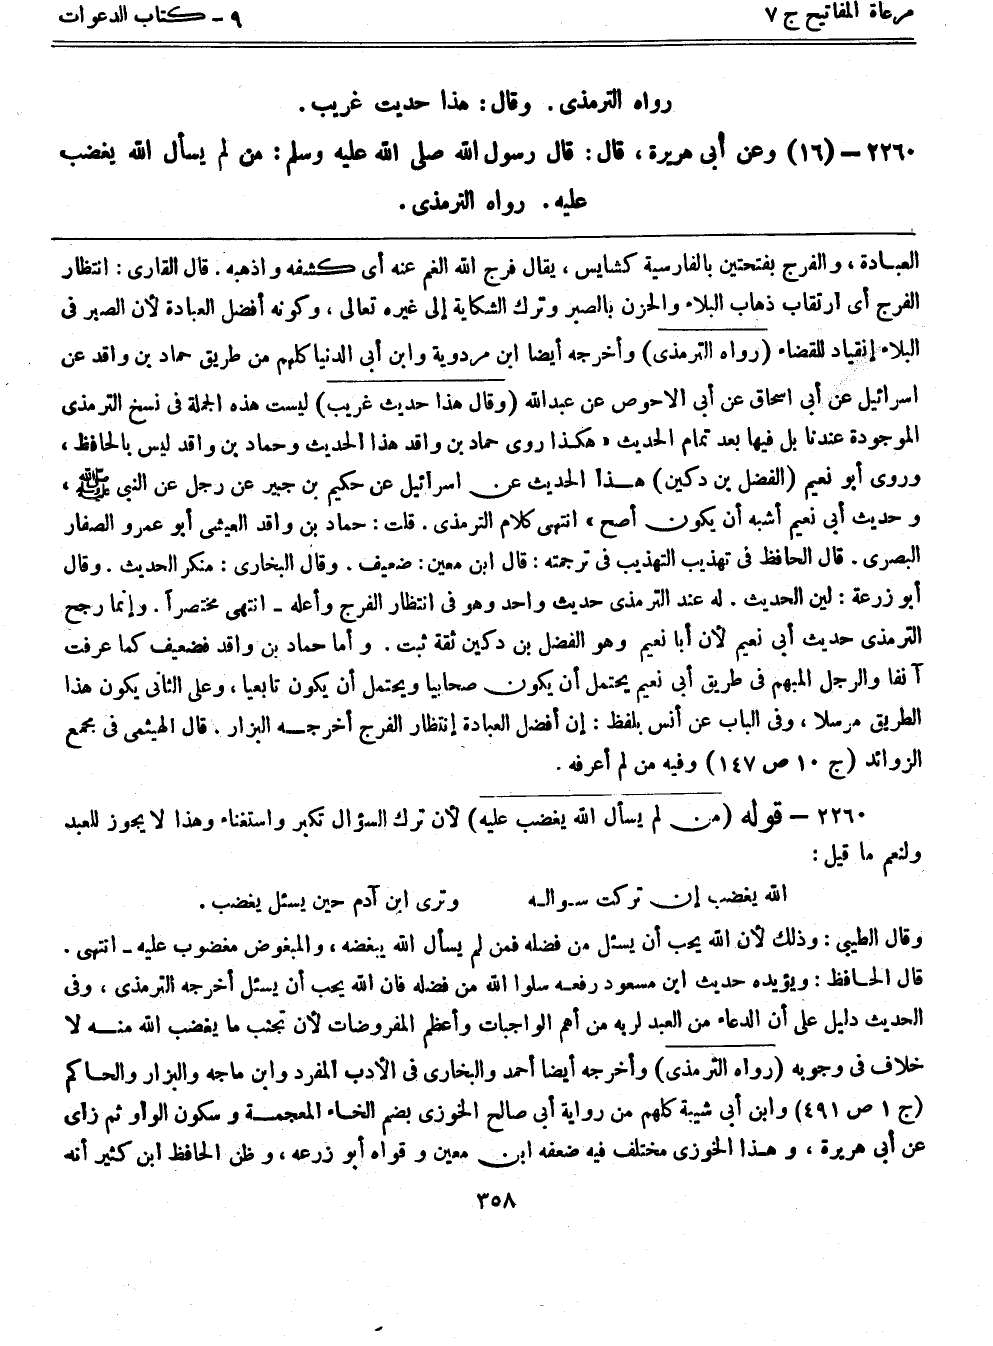 مرعاة المفاتيح ج ٧
٩ - كتاب الدعوات
رواه الترمذى . وقال : هذا حديث غريب .
٢٢٦٠ – (١٦) وعن أبى هريرة ، قال : قال رسول الله صلى الله عليه وسلم : من لم يسأل الله يغضب
عليه . رواه الترمذى .
العبادة ، والفرج بفتحتين بالفارسية كشايس ، يقال فرج الله الغم عنه أى كشفه و اذهبه . قال القارى : انتظار
الفرج أى ارتقاب ذهاب البلاء والحزن بالصبر وترك الشكاية إلى غيره تعالى ، وكونه أفضل العبادة لأن الصبر فى
البلاء إنقياد للقضاء (رواه الترمذى) وأخرجه أيضا ابن مردوية وابن أبى الدنيا كلهم من طريق حماد بن واقد عن
اسرائيل عن أبى اسحاق عن أبى الاحوص عن عبدالله (وقال هذا حديث غريب) ليست هذه الجملة فى نسخ الترمذى
الموجودة عندنا بل فيها بعد تمام الحديث « هكذا روى حماد بن واقد هذا الحديث وحماد بن واقد ليس بالحافظ ،
وروى أبو نعيم (الفضل بن دكين) هذا الحديث عن اسرائيل عن حكيم بن جبير عن رجل عن النبى ﷺ ،
و حديث أبى نعيم أشبه أن يكون أصح » انتهى كلام الترمذى . قلت : حماد بن واقد العيشى أبو عمرو الصفار
البصرى . قال الحافظ فى تهذيب التهذيب فى ترجمته : قال ابن معين : ضعيف . وقال البخارى : منكر الحديث . وقال
أبو زرعة : لين الحديث . له عند الترمذى حديث واحد وهو فى انتظار الفرج وأعله - انتهى مختصراً . وإنما رجح
الترمذى حديث أبى نعيم لأن أبا نعيم وهو الفضل بن دكين ثقة ثبت . و أما حماد بن واقد فضعيف كما عرفت
آنفا والرجل المبهم فى طريق أبى نعيم يحتمل أن يكون صحابيا ويحتمل أن يكون تابعيا ، وعلى الثانى يكون هذا
الطريق مرسلا ، وفى الباب عن أنس بلفظ : إن أفضل العبادة إنتظار الفرج أخرجه البزار . قال الهيثمى فى مجمع
الزوائد (ج ١٠ ص ١٤٧) وفيه من لم أعرفه .
٢٢٦٠ – قوله (من لم يسأل الله يغضب عليه) لأن ترك السؤال تكبر واستغناء وهذا لا يجوز للعبد
ولنعم ما قيل :
الله يغضب إن تركت سواله وترى ابن آدم حين يسئل يغضب .
وقال الطيبى : وذلك لأن الله يحب أن يسئل من فضله فمن لم يسأل الله يبغضه ، والمبغوض مغضوب عليه - انتهى .
قال الحافظ : ويؤيده حديث ابن مسعود رفعه سلوا الله من فضله فان الله يحب أن يسئل أخرجه الترمذى ، وفى
الحديث دليل على أن الدعاء من العبد لربه من أهم الواجبات وأعظم المفروضات لأن تجنب ما يغضب الله منه لا
خلاف فى وجوبه (رواه الترمذى) وأخرجه أيضا أحمد والبخارى فى الأدب المفرد وابن ماجه والبزار والحاكم
(ج ١ ص ٤٩١) وابن أبى شيبة كلهم من رواية أبى صالح الخوزى بضم الخاء المعجمة و سكون الواو ثم زاى
عن أبى هريرة ، و هذا الخوزى مختلف فيه ضعفه ابن معين و قواه أبو زرعه ، و ظن الحافظ ابن كثير أنه
٣٥٨